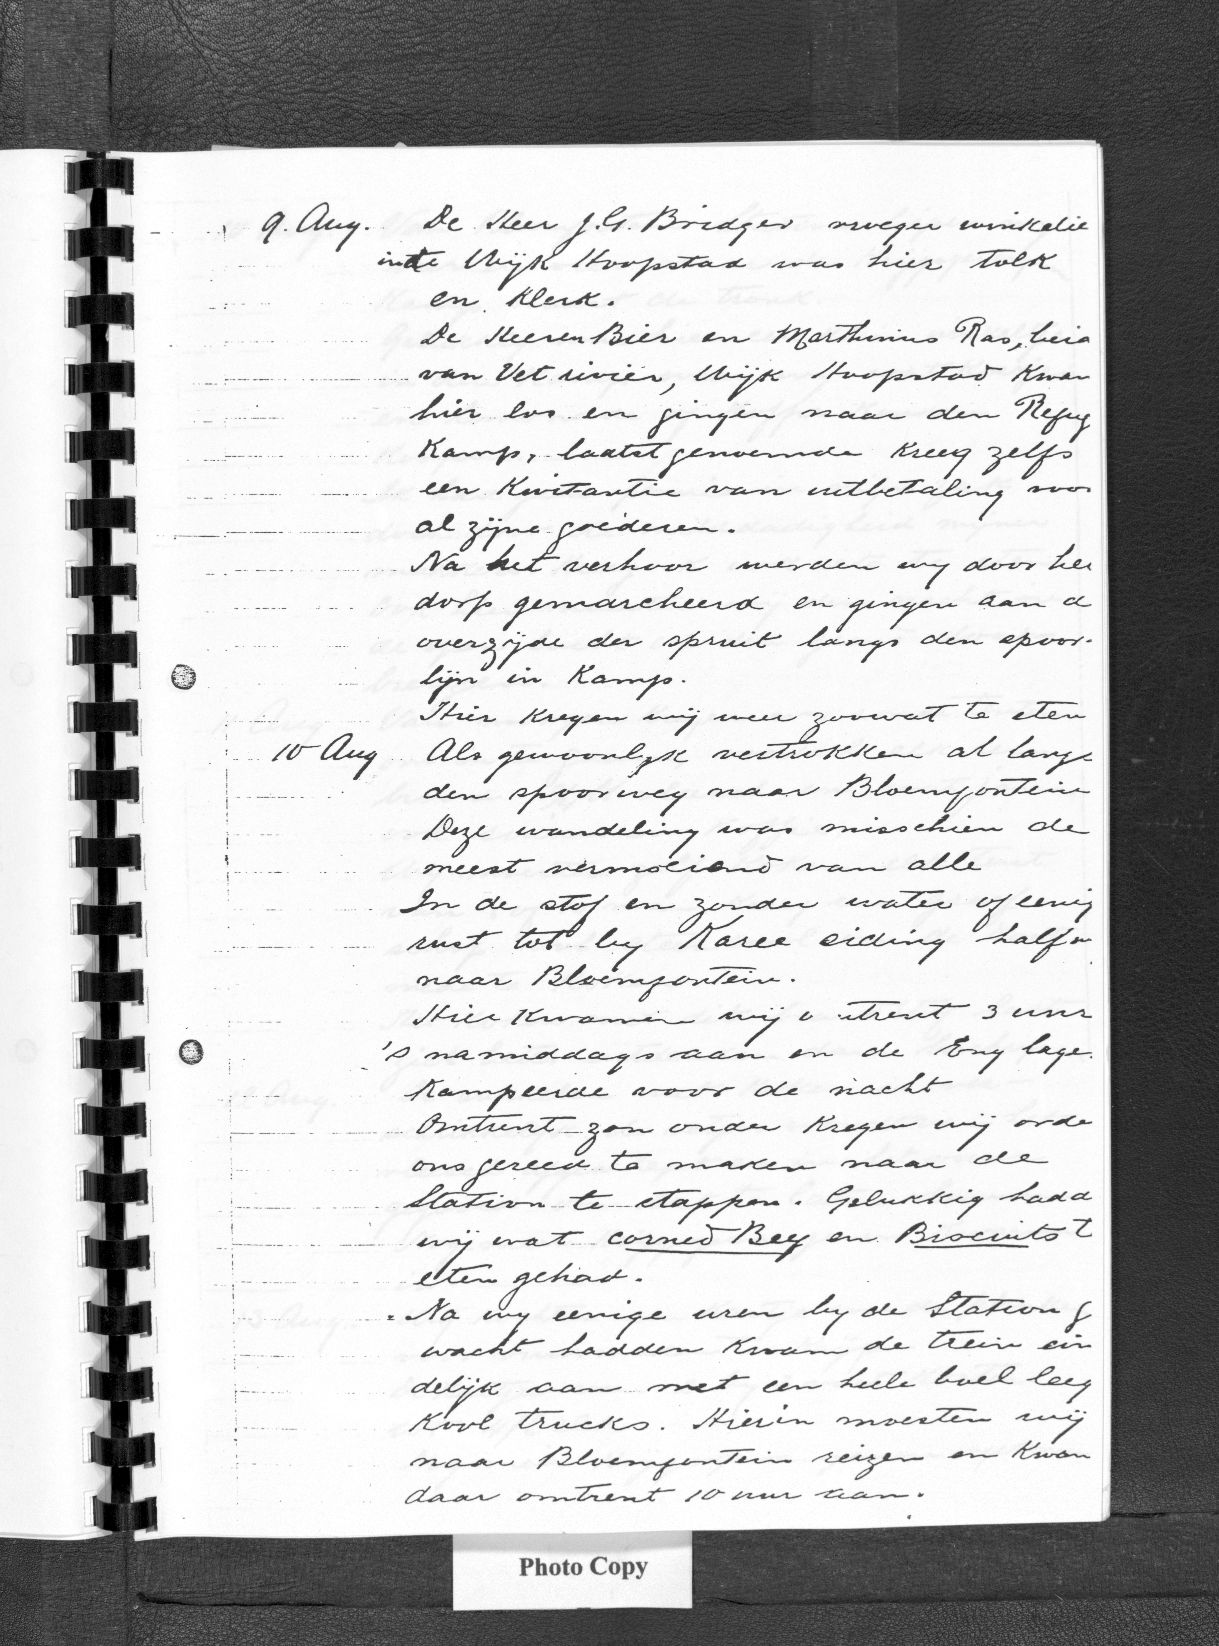 9. Aug. De Heer J.G. Bridger vroeger winkelie
in de Wijk Hoopstad was hier tolk
en klerk.
De Heeren Bier en Marthinus Ras, beid
van Vet rivier, Wijk Hoopstad Kwam
hier los en gingen naar den Refug
Kamp, laatstgenoemde Kreeg zelfs
een Kwitantie van uitbetaling voor
al zijne goederen.
Na het verhoor werden wy door het
dorp gemarcheerd en gingen aan d
overzijde der spruit langs den spoor-
lijn in Kamp.
Hier Kregen wij weer zoowat te eten
10 Aug Als gewoonlyk vertrokken al langs
den spoorweg naar Bloemfontein
Deze wandeling was misschien de
meest vermoeiend van alle
In de stof en zonder water of eenig
rust tot by Karee siding half w
naar Bloemfontein.
Hier Kwamen wij o trent 3 uur
's namiddags aan en de Eng lage
Kampeerde voor de nacht
Omtrent zon onder Kregen wij orde
ons gereed te maken naar de
Station te stappen. Gelukkig hadd
wij wat corned Bef en Biscuits t
eten gehad.
Na wy eenige uren by de Station g
wacht hadden Kwam de trein ein
delijk aan met een heele boel leeg
Kool trucks. Hierin moesten wij
naar Bloemfontein reizen en Kwam
daar omtrent 10 uur aan.
Photo Copy